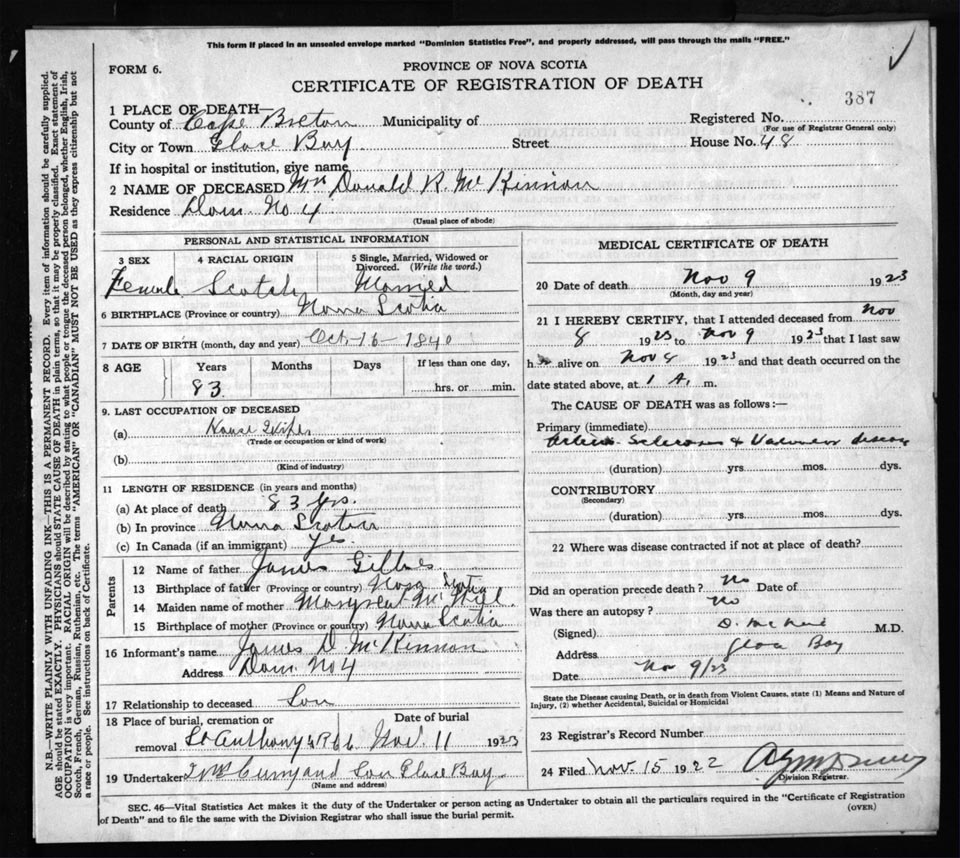 This form if placed in an unsealed envelope marked "Dominion Statistics Free", and properly addressed, will pass through the mails "FREE."
FORM 6.
PROVINCE OF NOVA SCOTIA
CERTIFICATE OF REGISTRATION OF DEATH
387
1 PLACE OF DEATH—
County of Cape Breton Municipality of Registered No.
(For use of Registrar General only)
City or Town Glace Bay Street House No. 48
If in hospital or institution, give name
2 NAME OF DECEASED Mrs Donald R. McKinnon
Residence Dom. No. 4
(Usual place of abode)
PERSONAL AND STATISTICAL INFORMATION
3 SEX 4 RACIAL ORIGIN 5 Single, Married, Widowed or Divorced. (Write the word.)
Female Scotch Married
6 BIRTHPLACE (Province or country) Nova Scotia
7 DATE OF BIRTH (month, day and year) Oct-16-1840
8 AGE Years Months Days If less than one day,
83 hrs. or min.
9. LAST OCCUPATION OF DECEASED
(a) House Wife
(Trade or occupation or kind of work)
(b)
(Kind of industry)
11 LENGTH OF RESIDENCE (in years and months)
(a) At place of death 83 yrs.
(b) In province Nova Scotia
(c) In Canada (if an immigrant) yes
Parents
12 Name of father James Gillies
13 Birthplace of father (Province or country) Nova Scotia
14 Maiden name of mother McNeil
15 Birthplace of mother (Province or country) Nova Scotia
16 Informant's name James D. McKinnon
Address Dom. No 4
17 Relationship to deceased Son
18 Place of burial, cremation or removal St Anthony's Date of burial Nov. 11 1923
19 Undertaker and Son Glace Bay
(Name and address)
MEDICAL CERTIFICATE OF DEATH
20 Date of death Nov 9 1923
(Month, day and year)
21 I HEREBY CERTIFY, that I attended deceased from Nov
8 1923 to Nov 9 1923 that I last saw
h alive on Nov 8 1923 and that death occurred on the
date stated above, at 1 A. m.
The CAUSE OF DEATH was as follows:—
Primary (immediate)
Arterio-Sclerosis & Valvular disease
(duration) yrs. mos. dys.
CONTRIBUTORY
(Secondary)
(duration) yrs. mos. dys.
22 Where was disease contracted if not at place of death?
Did an operation precede death? no Date of
Was there an autopsy? no
(Signed) D. McNeil M.D.
Address Glace Bay
Date Nov 9/23
State the Disease causing Death, or in death from Violent Causes, state (1) Means and Nature of
Injury, (2) whether Accidental, Suicidal or Homicidal
23 Registrar's Record Number
24 Filed Nov. 15 1922
Division Registrar.
SEC. 46—Vital Statistics Act makes it the duty of the Undertaker or person acting as Undertaker to obtain all the particulars required in the "Certificate of Registration
of Death" and to file the same with the Division Registrar who shall issue the burial permit.
(OVER)
N.B.—WRITE PLAINLY WITH UNFADING INK—THIS IS A PERMANENT RECORD. Every item of information should be carefully supplied.
AGE should be stated EXACTLY. PHYSICIANS should STATE CAUSE OF DEATH in plain terms, so that it may be properly classified. Exact statement of
OCCUPATION is very important. RACIAL ORIGIN will be described by stating to what people or tongue the deceased person belonged, whether English, Irish,
Scotch, French, German, Russian, Ruthenian, etc. The terms "AMERICAN" OR "CANADIAN" MUST NOT BE USED as they express citizenship but not
a race or people. See instructions on back of Certificate.